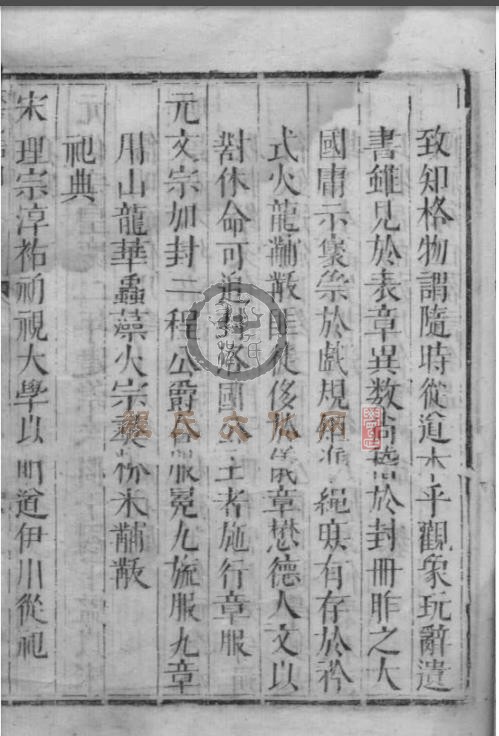 致知格物謂隨時從道本乎觀象玩辭遺
書雖見於表章異數尚於封冊胙之大
國庸示襃崇於戲規矩準繩有存於衿
式火龍黼黻匪徒侈於儀章懋德人文以
對休命可追封洛國公主者施行章服
元文宗加封二程公爵服冕九旒服九章
用山龍華蟲藻火宗彝粉米黼黻
祀典
宋理宗淳祐初視大學以明道伊川從祀
程氏文化网